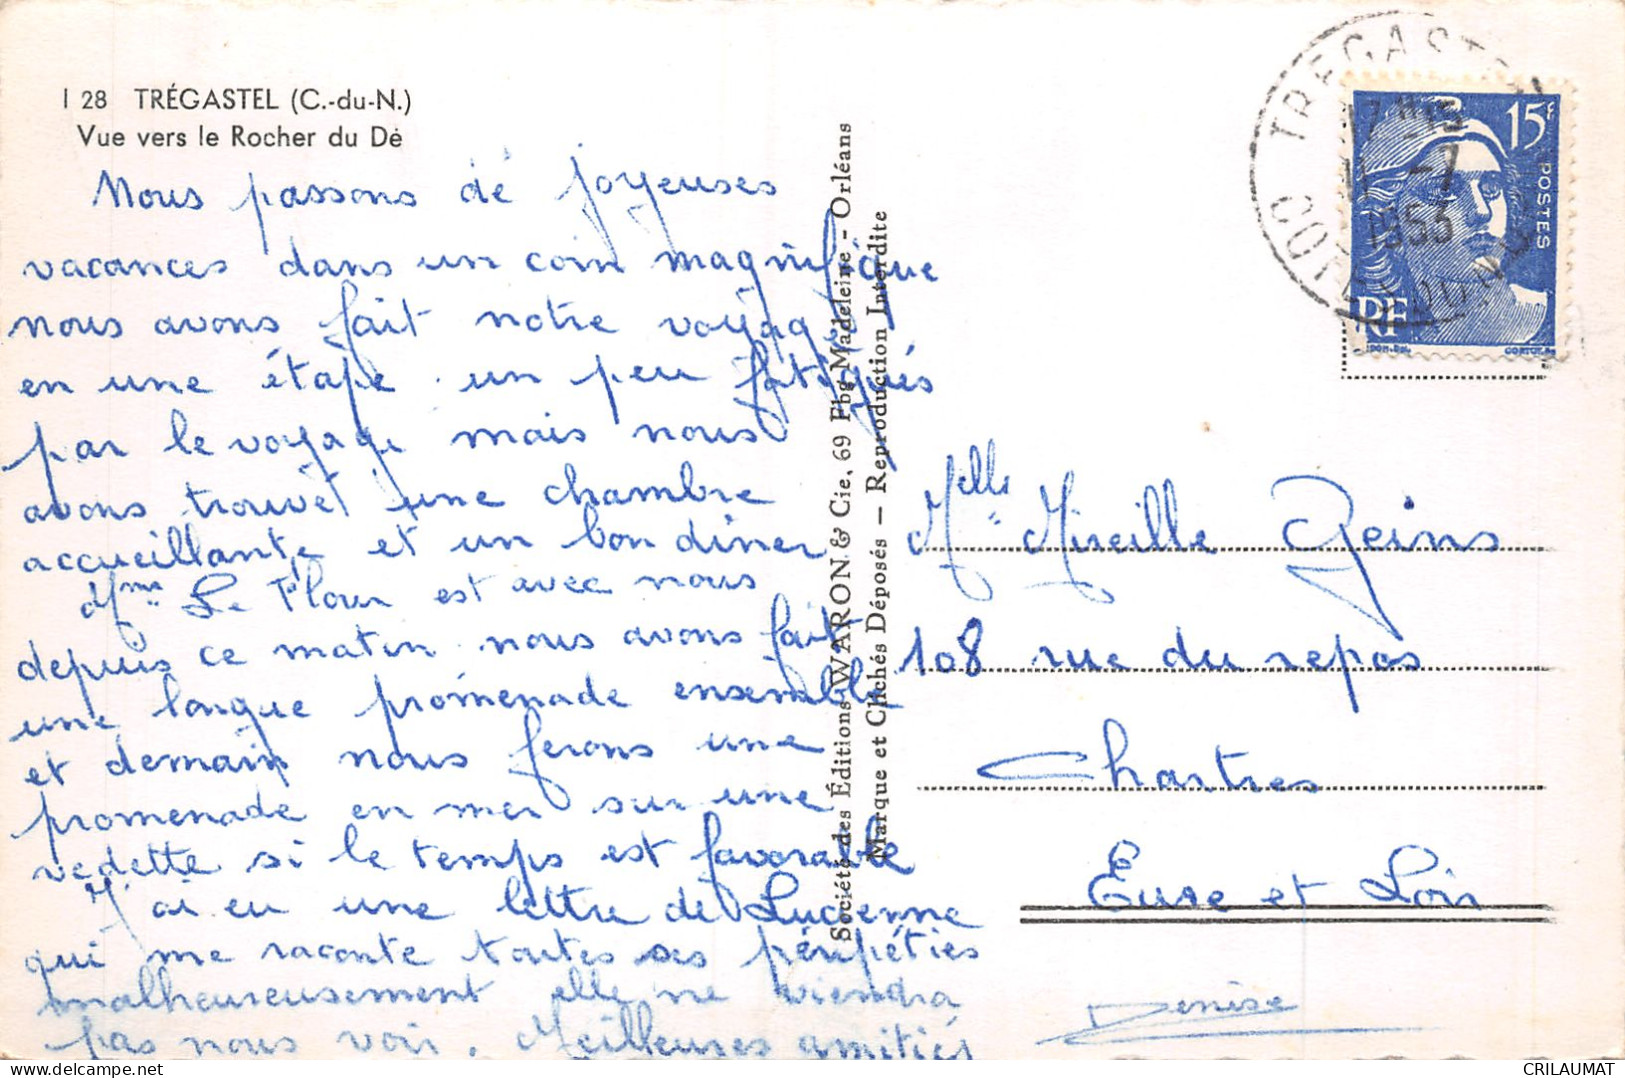 I 28 TRÉGASTEL (C.-du-N.)
Vue vers le Rocher du Dé
Nous passons de joyeuses
vacances dans un coin magnifique
nous avons fait notre voyage
en une étape. un peu fatigués
par le voyage mais nous
avons trouvé une chambre
accueillante et un bon dîner
Mme Le Flour est avec nous
depuis ce matin. nous avons fait
une longue promenade ensemble
et demain nous ferons une
promenade en mer sur une
vedette si le temps est favorable
J'ai eu une lettre de Lucienne
qui me raconte toutes ses péripéties
malheureusement elle ne viendra
pas nous voir. Meilleures amitiés
Denise
Société des Éditions WARON & Cie, 69 Fbg Madeleine - Orléans
Marque et Clichés Déposés — Reproduction Interdite
TREGASTEL
17 H 15
11 -7
1953
COTES DU NORD
15F
POSTES
RF
Melle Mireille Geins
108 rue du repos
Chartres
Eure et Loir
CRILAUMAT